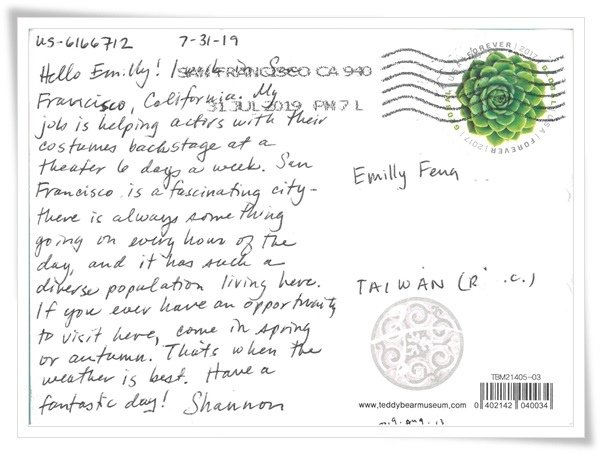 US-6166712 7-31-19
Hello Emilly! I work in San
Francisco, California. My
job is helping actors with their
costumes backstage at a
theater 6 days a week. San
Francisco is a fascinating city-
there is always something
going on every hour of the
day, and it has such a
diverse population living here.
If you ever have an opportunity
to visit here, come in spring
or autumn. Thats when the
weather is best. Have a
fantastic day! Shannon
SAN FRANCISCO CA 940
31 JUL 2019 PM 7 L
GLOBAL USA FOREVER 2017
Emilly Feng
TAIWAN (R. .C.)
TBM21405-03
www.teddybearmuseum.com
0 402142 040034